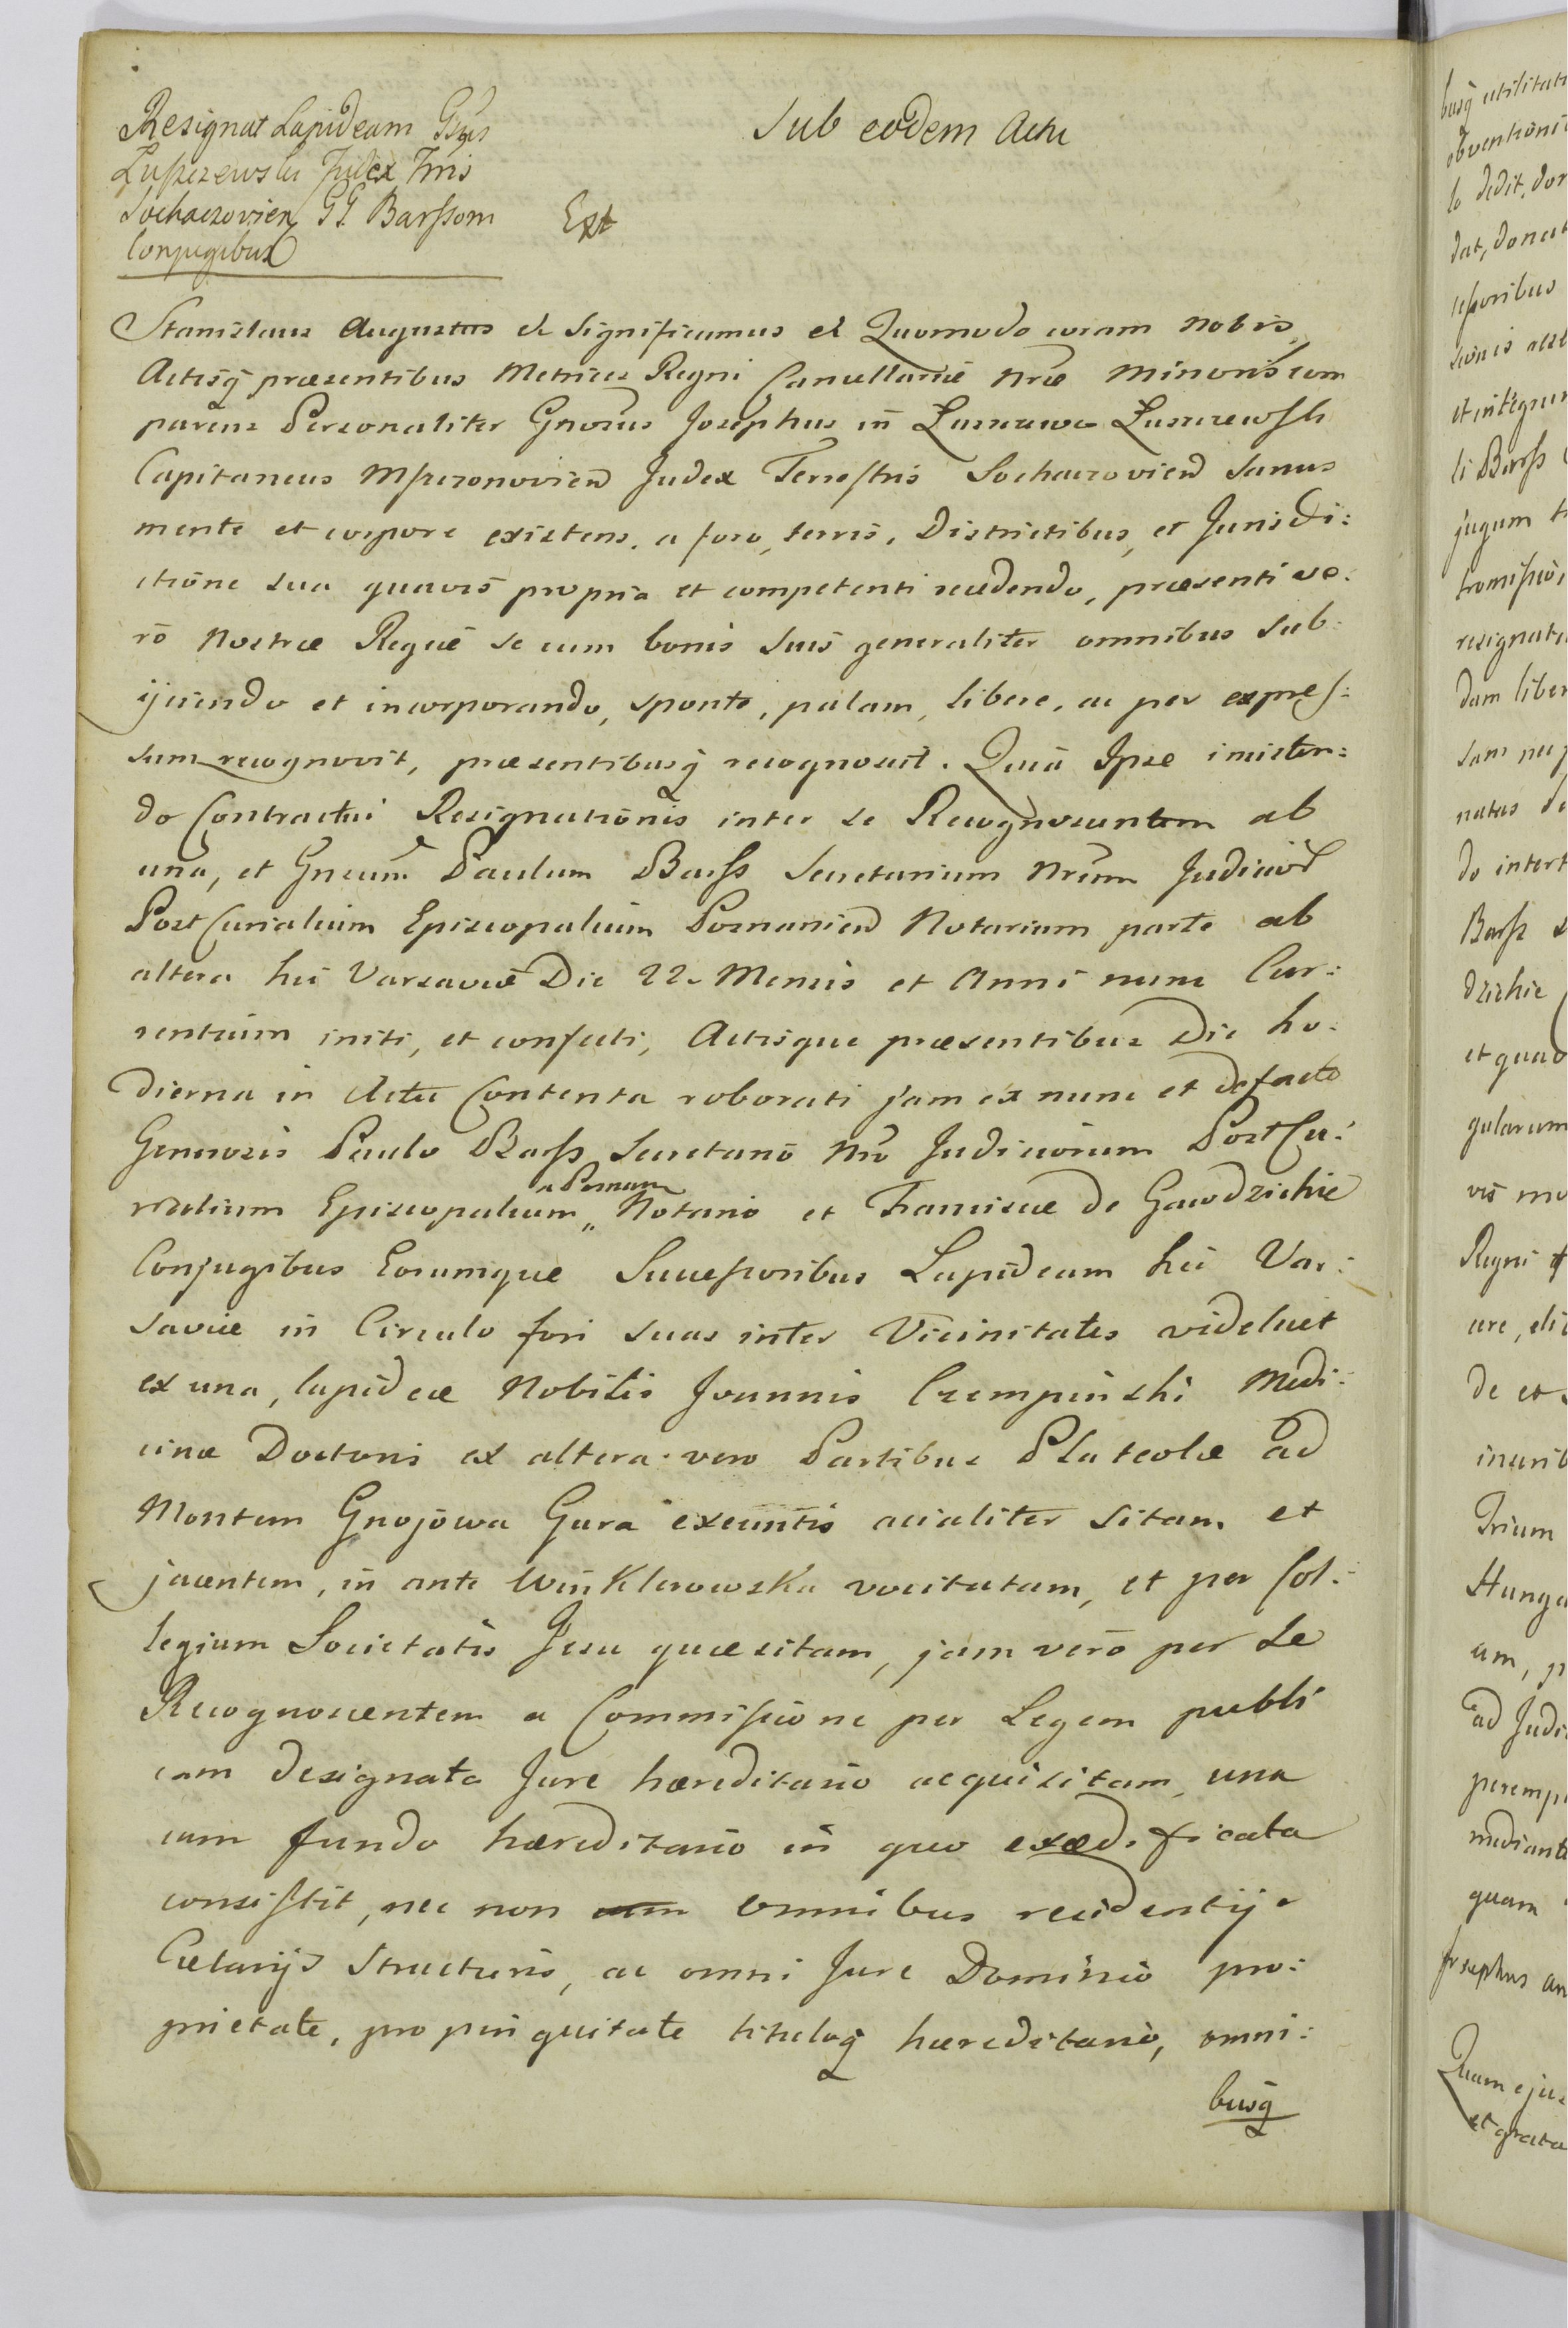 Resignat Lapideam Gsus
Luszczewski Judex Trris
Sochaczovien GG. Barssom
Conjugibus
Sub eodem Actu
Ext
Stanislaus Augustus etc Significamus etc Quomodo coram nobis,
Actisq præsentibus Metrices Regni Cancellariæ nræ Minoris com
parens Personaliter Gnosus Josephus in Luszczewo Luszczewski
Capitaneus Mszczonovien Judex Terrestris Sochaczovien Sanus
mente et corpore existens, a foro, terris, Districtibus, et Jurisdi:
ctione sua quavis propria et competenti recedendo, præsenti ve:
ro nostræ Regiæ se cum bonis suis generaliter omnibus sub:
ijciendo et incorporando, sponte, palam, libere, ac per expres:
sum recognovit, præsentibusq recognoscit. Quia Ipse inisten:
do Contractui Resignationis inter se Recognoscentem ab
una, et Gnsum Paulum Barss Secretarium Nrum Judicior
Post Curialium Episcopalium Posnanien Notarium parte ab
altera hic Varsaviæ Die 22. Mensis et Anni nunc Cur:
rentium initi, et confecti, Actisque præsentibus Die ho:
dierna in Actu Contenta roborati jam ex nunc et de facto
Generosis Paulo Barss Secretario Nro Judiciorum Post Cu:
rialium Episcopalium „ Notario et Francisca de Gawdzickie
„ Posnan
Conjugibus Eorumque Successoribus Lapideam hic Var:
saviæ in Circulo fori suas inter Vicinitates videlicet
ex una, lapideæ Nobilis Joannis Czempinski Medi:
cinæ Doctoris ex altera vero Partibus Plateolæ ad
Montem Gnojowa Gura exeuntis acialiter sitam et
jacentem, in ante Winklerowska vocitatam, et per Col:
legium Societatis Jesu quæsitam, jam vero per Se
Recognoscentem a Commissione per Legem publi
cam designata Jure hæreditario acquisitam, una
cum fundo hæreditario in quo exædificata
consistit, nec non cum omnibus recidentijs
Cellarijs Structuris, ac omni Jure Dominio pro:
prietate, propinquitate tituloq hæreditario, omni:
busq